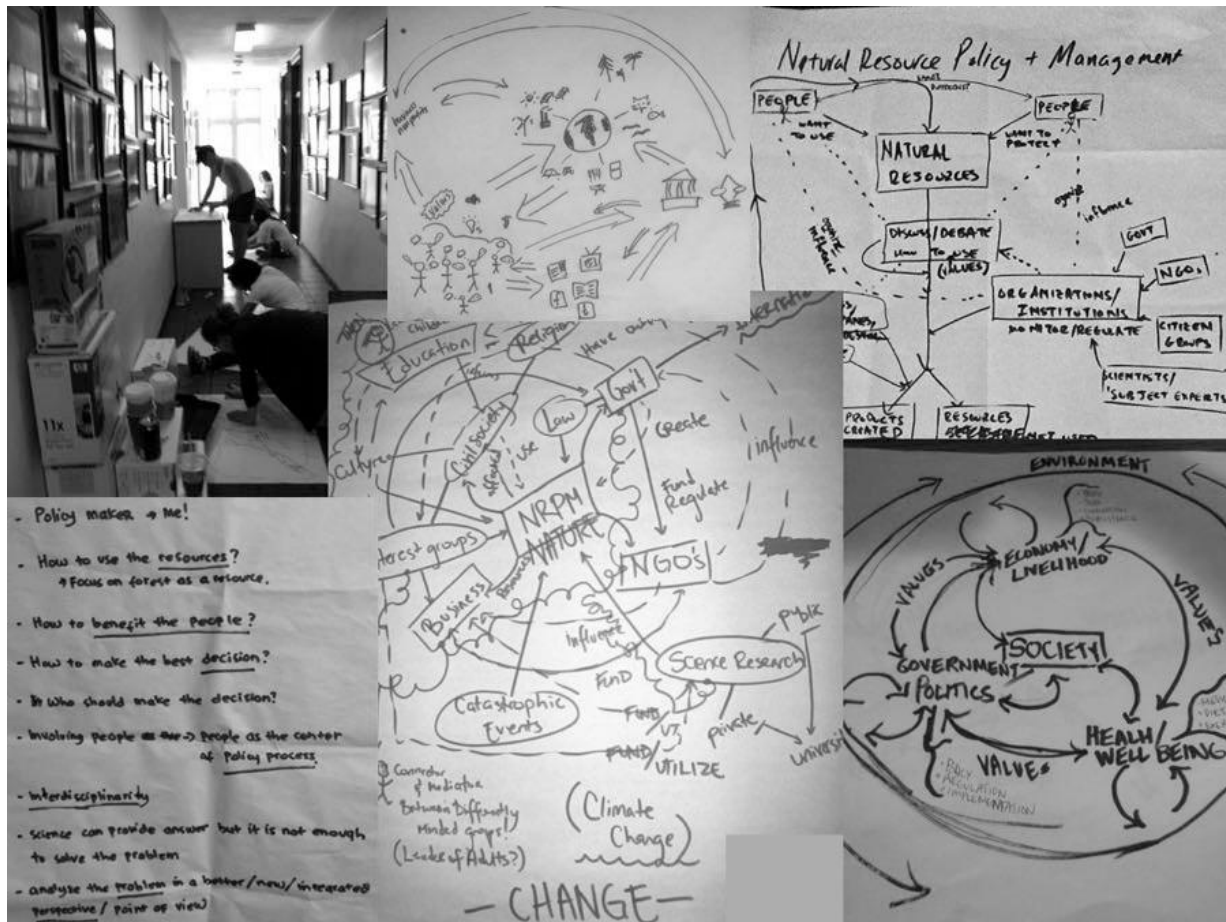 11x
values
Natural Resource Policy + Management
PEOPLE
PEOPLE
WANT
TO USE
WANT TO
PROTECT
NATURAL
RESOURCES
DISCUSS/DEBATE
TO USE
(VALUES)
influence
GOVT
NGOs
CITIZEN
GROUPS
ORGANIZATIONS/
INSTITUTIONS
MONITOR/REGULATE
SCIENTISTS/
SUBJECT EXPERTS
PRODUCTS
CREATED
RESOURCES
Education
Religion
Have
Culture
Civil Society
affected
use
Law
Gov't
Create
influence
Fund
Regulate
NRPM
NATURE
interest groups
Business
NGO's
Influence
Science Research
public
private
FUND
Catastrophic
Events
FUND
FUND/
UTILIZE
Connector
& Mediator
Between Differently
Minded groups!
(Leader of Adults?)
(Climate
Change)
- CHANGE -
- Policy maker → Me!
- How to use the resources?
→ Focus on forest as a resource.
- How to benefit the people?
- How to make the best decision?
- Who should make the decision?
- Involving people → People as the center
of Policy process
- Interdisciplinarity
- Science can provide answer but it is not enough
to solve the problem
- analyze the problem in a better/new/integrated
perspective/point of view
ENVIRONMENT
ECONOMY/
LIVELIHOOD
VALUES
VALUES
SOCIETY
GOVERNMENT
POLITICS
HEALTH/
WELL BEING
VALUES
· POLICY
· REGULATION
· IMPLEMENTATION